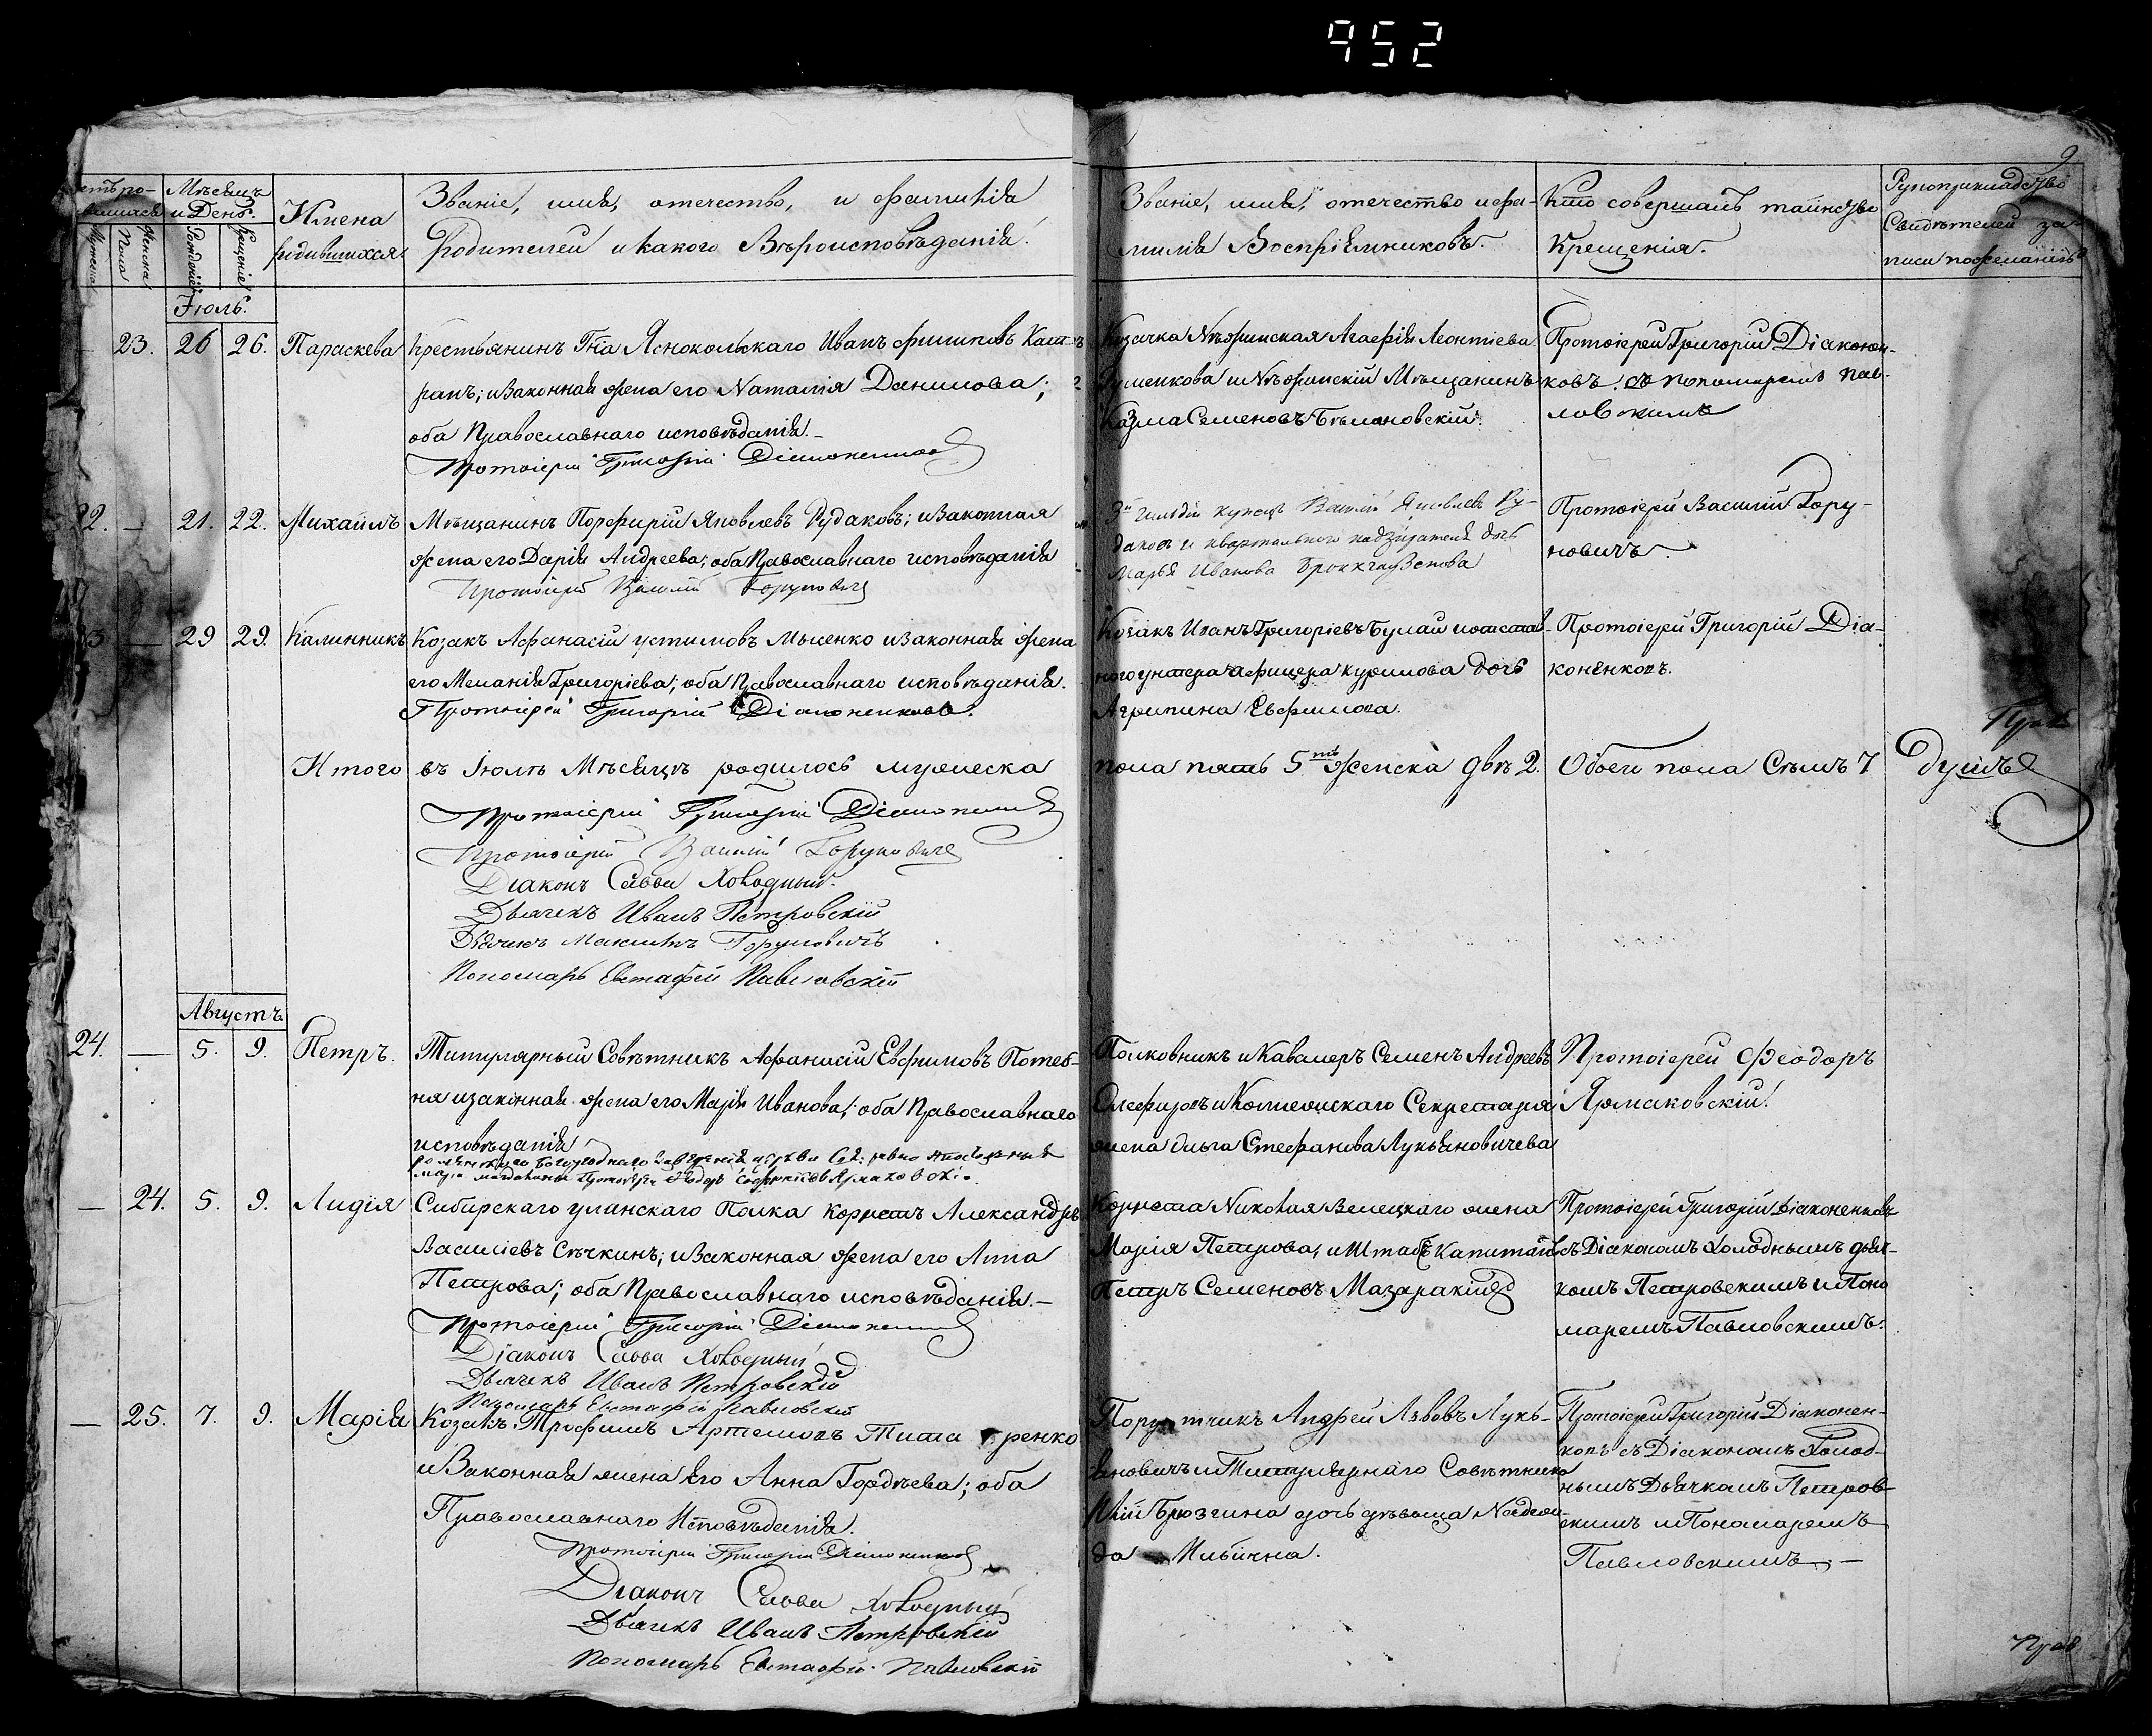 952
9
Мѣсяцъ
и День.
Имена
родившихся.
Званіе, имя, отечество, и фамилія
родителей и какого Вѣроисповѣданія.
Званіе, имя, отечество и фа-
милія Воспріемниковъ.
Кто совершалъ таинство
Крещенія.
Рукоприкладство
Свидѣтелей за-
писи по желанію
Мужеска
Пола
Женска
Рожденія
Крещенія
Іюль.
23. 26 26. Параскева
Крестьянинъ Гна Яснокольскаго Иванъ Филиповъ
жена его Наталія Данилова;
оба Православнаго исповѣданія.
Протоіерей Григорій Діаконенковъ
Козачка Нѣжинская Агафія Леонтіева
и Нѣжинскій Мѣщанинъ
Козма Семеновъ
Протоіерей Григорій Діаконен-
ковъ. съ Пономаремъ Пав-
ловскимъ
22. — 21. 22. Михаилъ
Мѣщанинъ Порфирій Яковлевъ Рудаковъ; и Законная
жена его Дарія Андреева; оба Православнаго исповѣданія
Протоіерей Василій Горуновичъ
3й Гильдіи купецъ Василій Яковлевъ Ру-
даковъ и квартальнаго надзирателя дочь
Марья Иванова
Протоіерей Василій Гору-
новичъ
— 29 29. Калинникъ
Козакъ Афанасій Устимовъ Мысенко и законная жена
его Меланія Григоріева; оба Православнаго исповѣданія.
Протоіерей Григорій Діаконенковъ.
Козакъ Иванъ Григоріевъ Булай и отстав-
ного унтера афицера Курилова дочь
Агрипина Евфимова.
Протоіерей Григорій Діа-
коненковъ.
Итого
въ Іюлѣ Мѣсяцѣ родилось мужеска
пола пять 5ть женска двѣ 2.
Обоего пола Семъ 7
душъ
Протоіерей Григорій Діаконенковъ
Протоіерей Василій Горуновичъ
Діаконъ Савва Холодный.
Дьячекъ Иванъ Петровскій
Дьячекъ Максимъ Горуновичъ
Пономарь Евстафій Павловскій
Августъ
24. — 5. 9. Петръ.
Титулярный Совѣтникъ Афанасій Евфимовъ Потеб-
ня и законная жена его Марія Иванова; оба Православнаго
исповѣданія
Полковникъ и Кавалеръ Семенъ Андреевъ
Олефировъ и Колежскаго Секретаря
жена Ольга Стефанова Лукьяновичева
Протоіерей Феодоръ
Ярмаковскій.
— 24. 5. 9. Лидія
Сибирскаго уланскаго Полка Корнетъ Александръ
Василіевъ Сѣчкинъ; и Законная жена его Анна
Петрова; оба Православнаго исповѣданія.—
Протоіерей Григорій Діаконенковъ
Діаконъ Савва Холодный
Дьячекъ Иванъ Петровскій
Пономарь Евстафій Павловскій
Корнета Николая Велецкаго жена
Марія Петрова, и Штабсъ Капитанъ
Петръ Семеновъ Мазаракій
Протоіерей Григорій Діаконенковъ
съ Діакономъ Холоднымъ дьяч-
комъ Петровскимъ и Поно
маремъ Павловскимъ.
— 25. 7. 9. Марія
Козакъ Трофимъ Артемовъ
и Законная жена его Анна Гордѣева; оба
Православнаго Исповѣданія.
Протоіерей Григорій Діаконенковъ
Діаконъ Савва Холодный
Дьячекъ Иванъ Петровскій
Пономарь Евстафій Павловскій
Поручикъ Андрей Львовъ Лукь-
яновичъ и Титулярнаго Совѣтника
Иліи Брюзгина дочь дѣвица Надеж-
да Ильична.
Протоіерей Григорій Діаконен-
ковъ съ Діакономъ Холод-
нымъ Дьячкомъ Петров-
скимъ и Пономаремъ
Павловскимъ.—